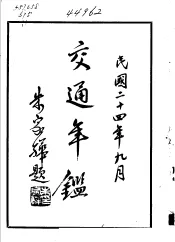 44962
民國二十四年九月
交通年鑑
朱家驊題